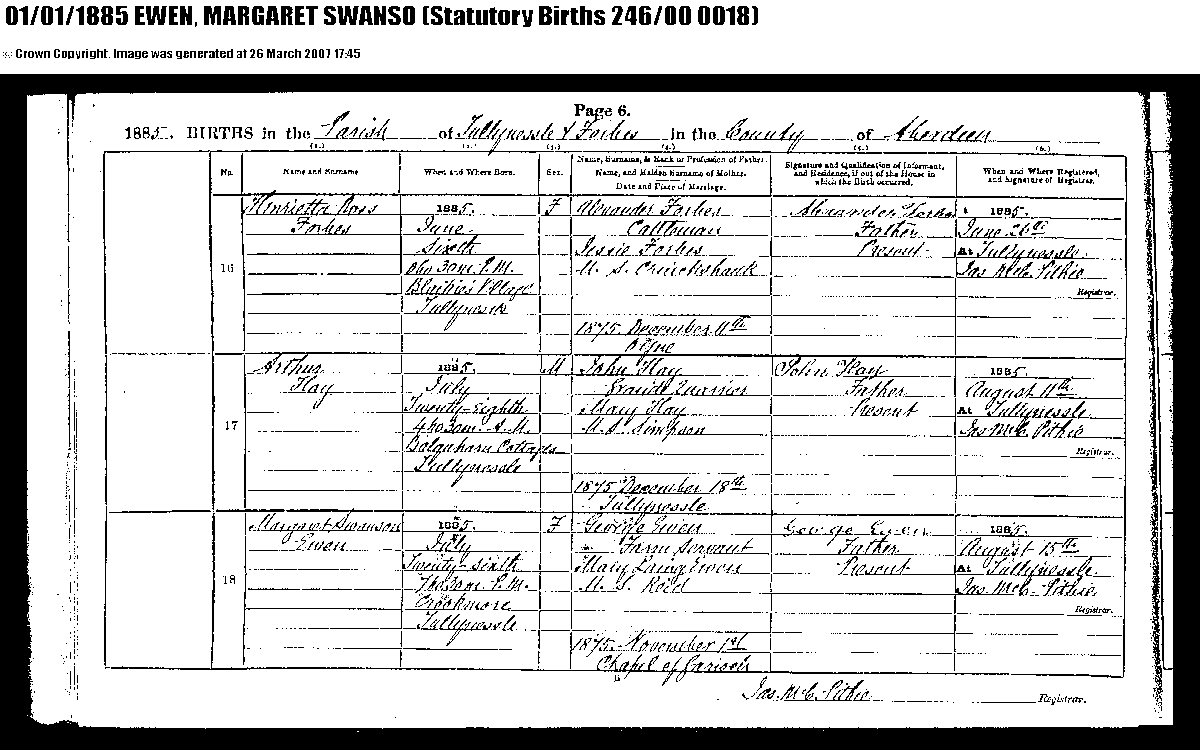 01/01/1885 EWEN, MARGARET SWANSO (Statutory Births 246/00 0018)
© Crown Copyright. Image was generated at 26 March 2007 17:45
Page 6.
1885. BIRTHS in the Parish of Tullynessle & Forbes in the County of Aberdeen
(1.) (2.) (3.) (4.) (5.) (6.)
No.
Name and Surname
When and Where Born.
Sex.
Name, Surname, & Rank or Profession of Father.
Name, and Maiden Surname of Mother.
Date and Place of Marriage.
Signature and Qualification of Informant,
and Residence, if out of the House in
which the Birth occurred.
When and Where Registered,
and Signature of Registrar.
16
Henrietta Ross
Forbes
1885.
June
Sixth
0h 30m. P.M.
Village
Tullynessle
F
Alexander Forbes
Cattleman
Jessie Forbes
M. S. Cruickshank
1875. December 11th
Alexander Forbes
Father
Present
1885.
June 26th
At Tullynessle.
Jas McC. Pithie
Registrar.
17
Arthur
Hay
1885.
July
Twenty-Eighth
4h 30m. A.M.
Cottages
Tullynessle
M
John Hay
Mary Hay
M. S. Simpson
1875 December 18th
Tullynessle
John Hay
Father
Present
1885.
August 11th
At Tullynessle
Jas McC. Pithie
Registrar.
18
Margaret Swanson
Ewen
1885.
July
Twenty-sixth
7h 30m. P.M.
Crookmore
Tullynessle
F
George Ewen
Farm Servant
Mary Laing Ewen
M. S. Reid
1875. November 1st
Chapel of Garioch
George Ewen
Father
Present
1885.
August 15th
At Tullynessle.
Jas. McC. Pithie
Registrar.
Jas. McC. Pithie Registrar.